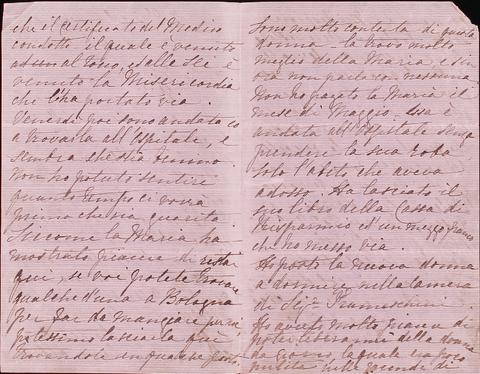 che il certificato del Medico
condotto il quale è venuto
ad un al tocco, e alle sei è
venuta la Misericordia
che l'ha portato via.
Venerdì poi sono andata io
a trovarla all'Ospitale, e
sembra che stia benino.
Non ho potuto sentire
quanto tempo ci vorrà
prima che sia guarita.
Siccome la Maria ha
mostrato piacere di restar
qui, se voi potete trovare
qualched'una a Bologna
per far da mangiare
potessimo lasciarla qui
trovandole un qualche
Sono molto contenta di questa
donna - la trovo molto
meglio della Maria, e sin
ora non parla con nessuna.
Non ho pagato la Maria il
mese di Maggio. Essa è
andata all'Ospitale senza
prendere la sua roba
solo l'abito che aveva
addosso. Ha lasciato il
suo libro della Cassa di
Risparmio ed un mezzo franco
che ho messo via.
Ho posto la nuova donna
a dormire nella camera
di
Ho avuto molto piacere di
poter liberarmi della donna
da giorno, la quale era poco
pulita nelle faccende di